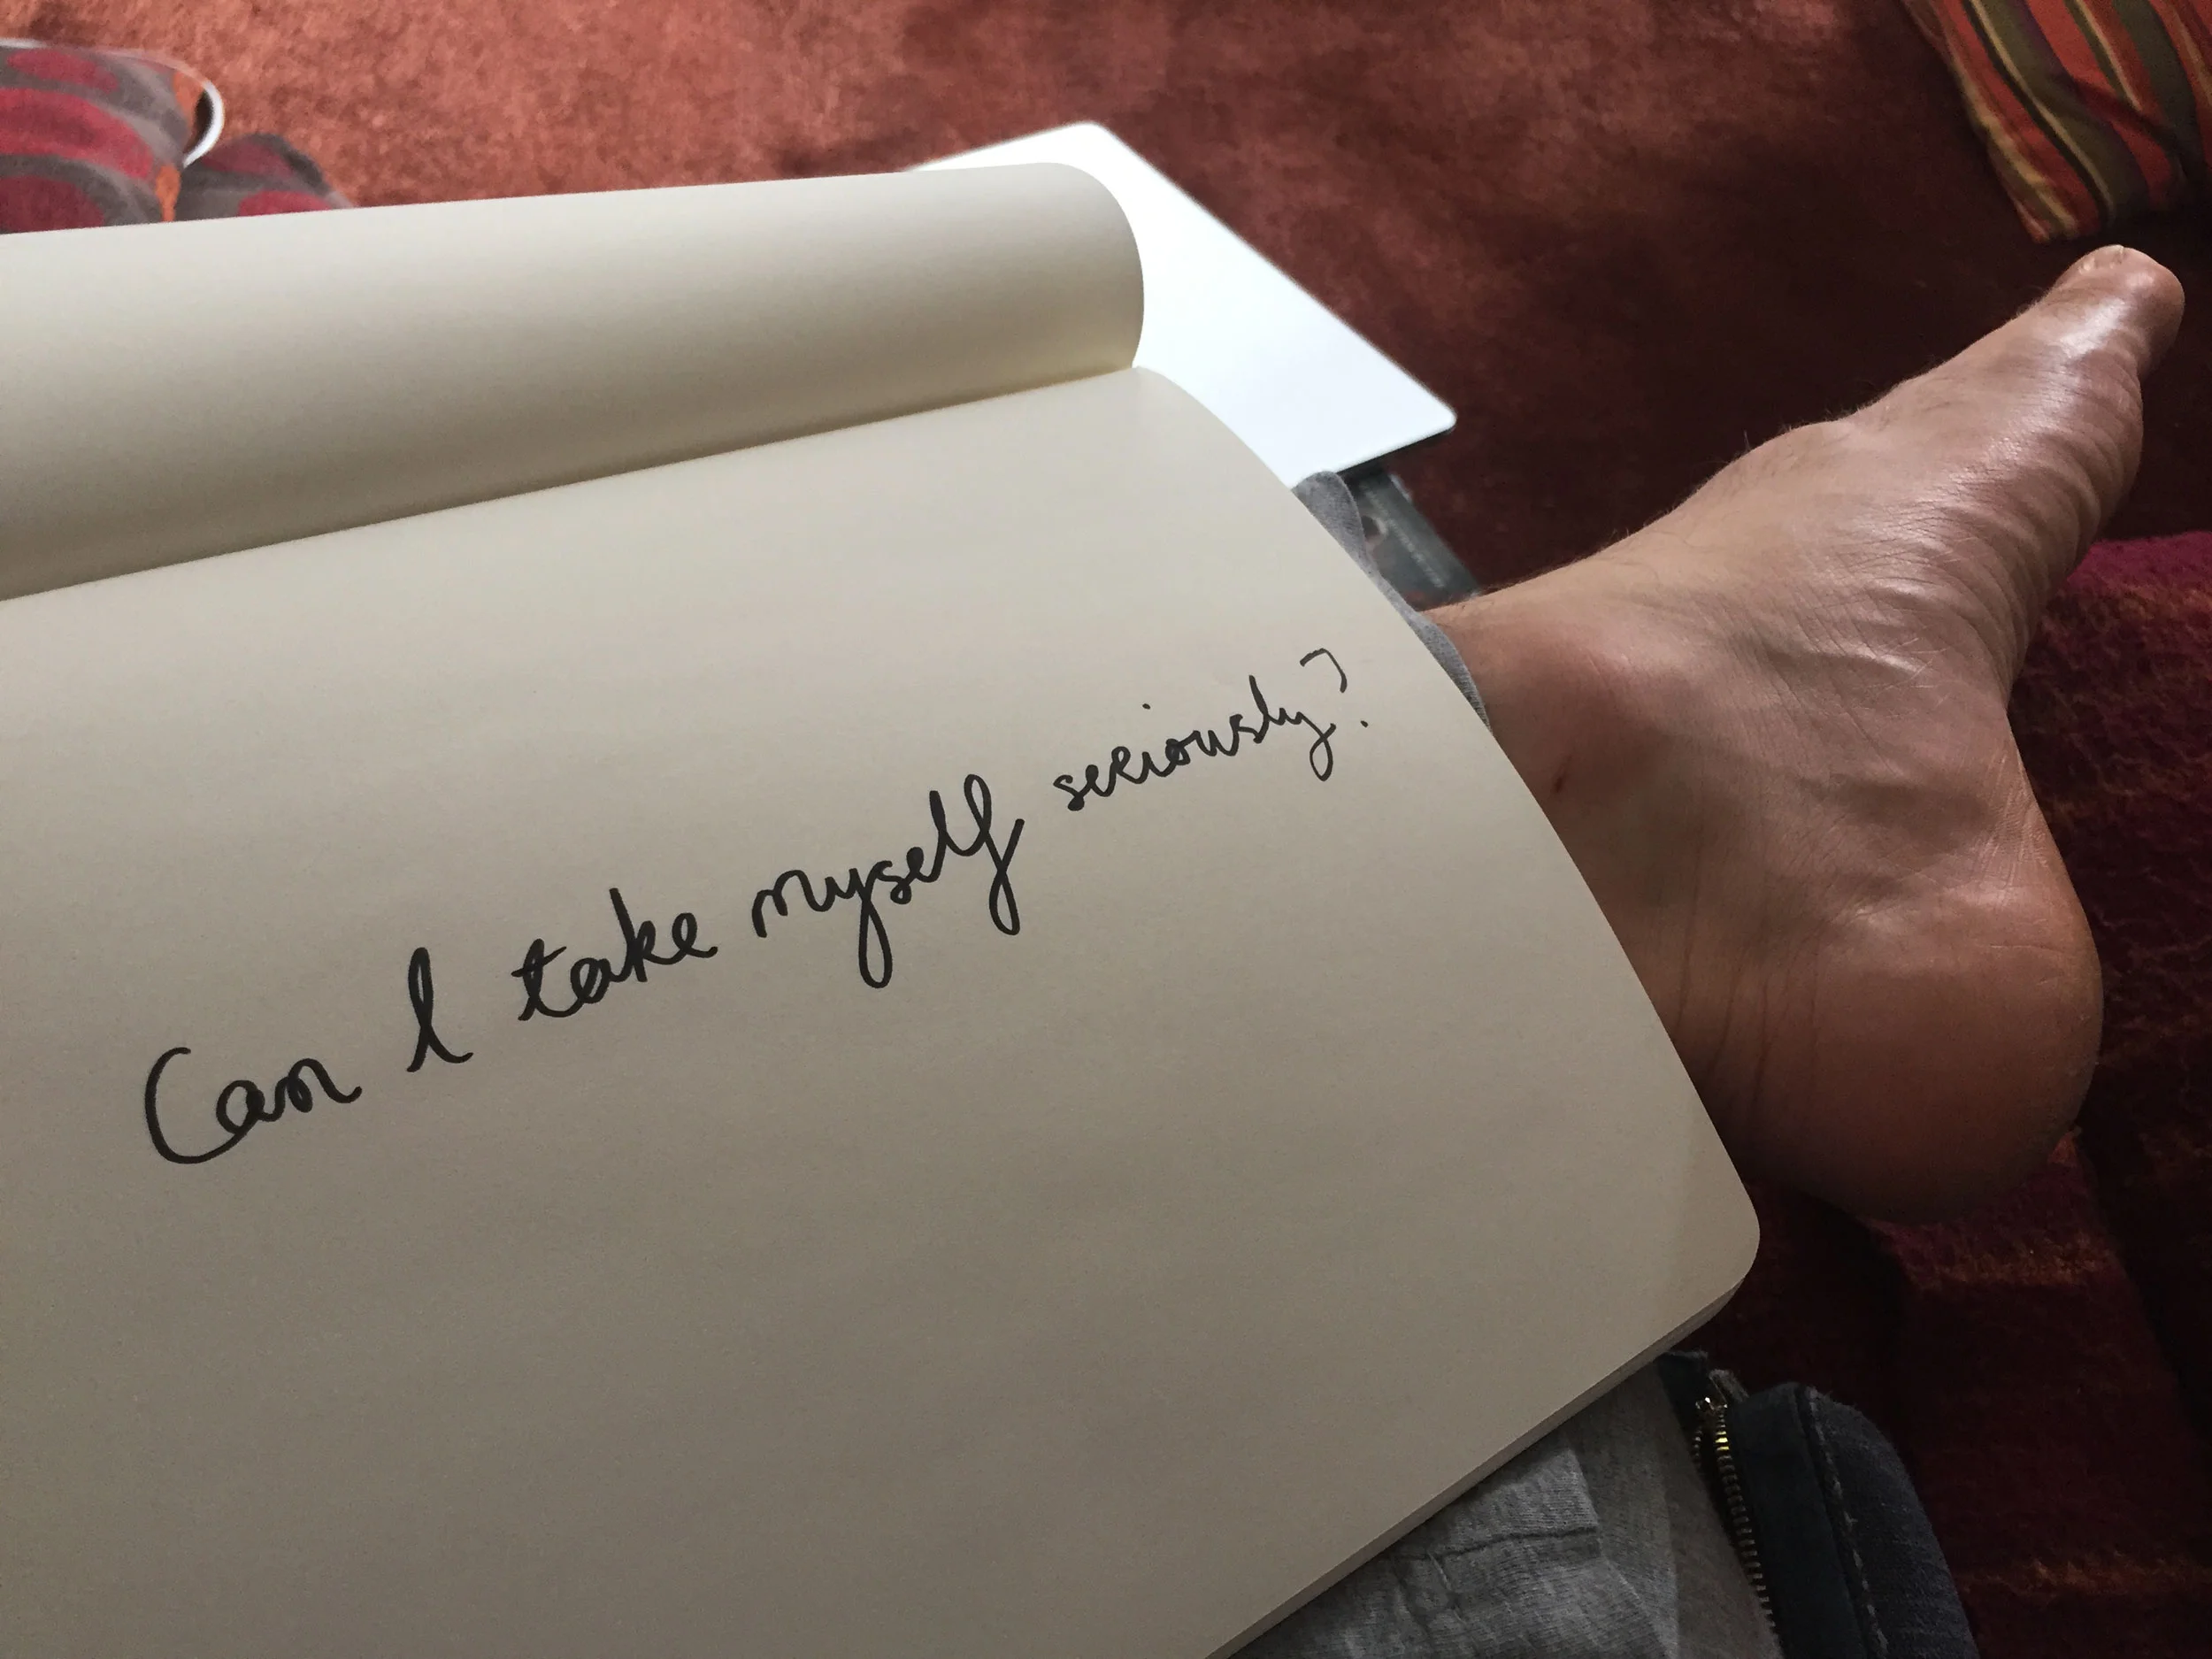 Can I take myself seriously?